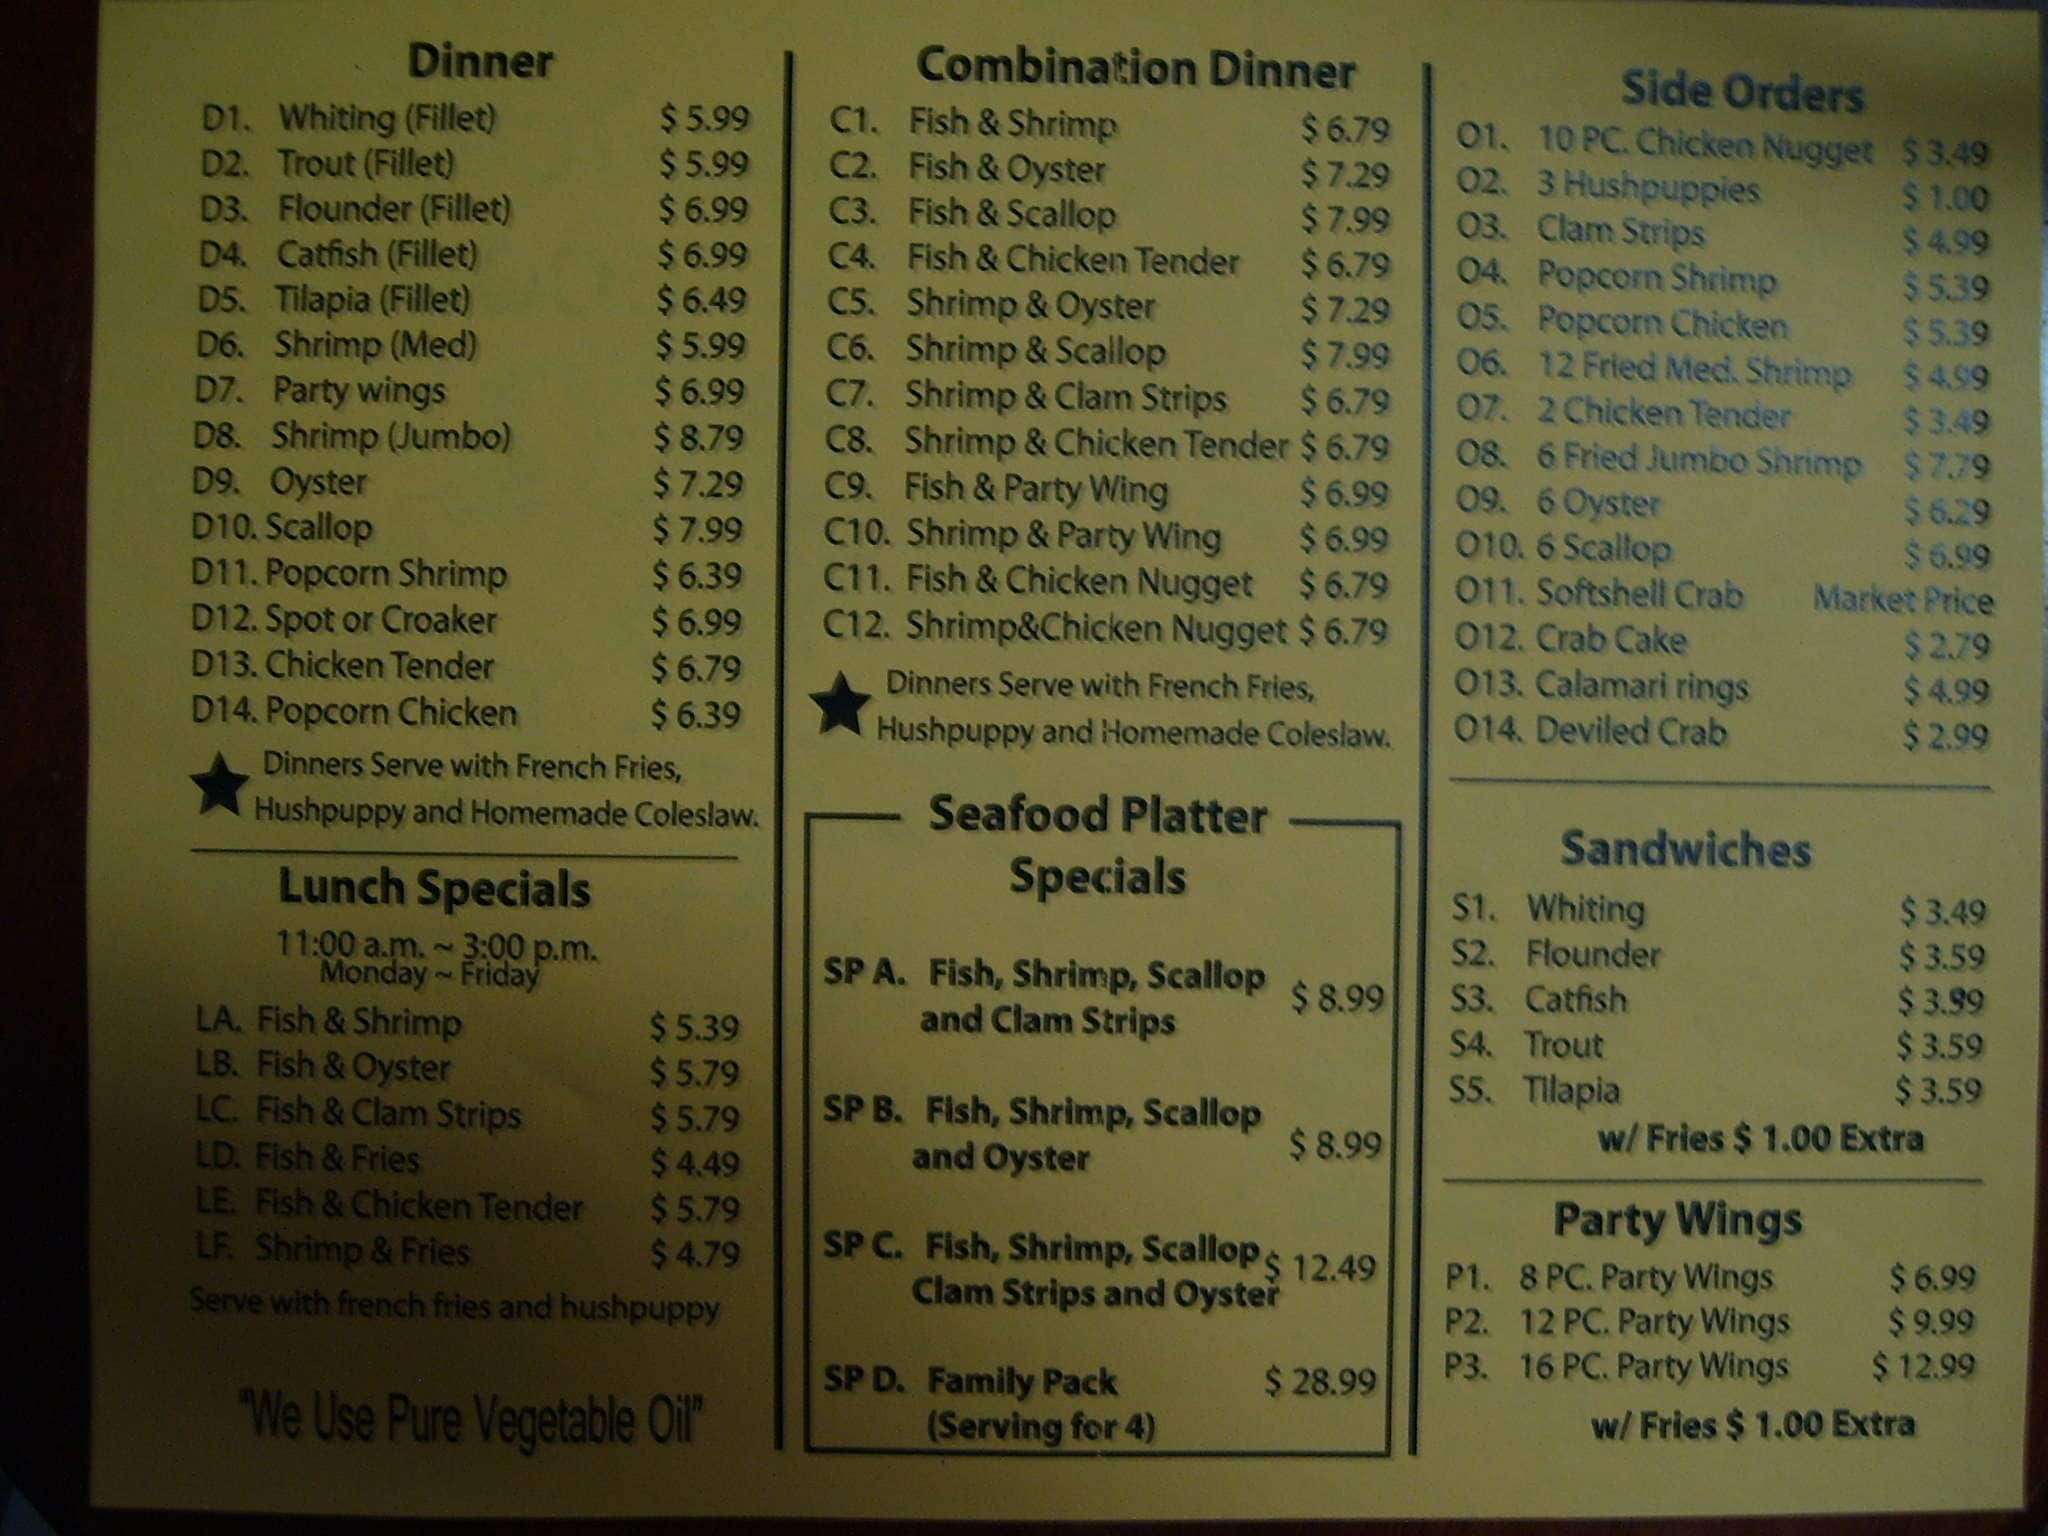 Dinner
D1. Whiting (Fillet) $ 5.99
D2. Trout (Fillet) $ 5.99
D3. Flounder (Fillet) $ 6.99
D4. Catfish (Fillet) $ 6.99
D5. Tilapia (Fillet) $ 6.49
D6. Shrimp (Med) $ 5.99
D7. Party wings $ 6.99
D8. Shrimp (Jumbo) $ 8.79
D9. Oyster $ 7.29
D10. Scallop $ 7.99
D11. Popcorn Shrimp $ 6.39
D12. Spot or Croaker $ 6.99
D13. Chicken Tender $ 6.79
D14. Popcorn Chicken $ 6.39
Dinners Serve with French Fries,
Hushpuppy and Homemade Coleslaw.
Lunch Specials
11:00 a.m. ~ 3:00 p.m.
Monday ~ Friday
LA. Fish & Shrimp $ 5.39
LB. Fish & Oyster $ 5.79
LC. Fish & Clam Strips $ 5.79
LD. Fish & Fries $ 4.49
LE. Fish & Chicken Tender $ 5.79
LF. Shrimp & Fries $ 4.79
Serve with french fries and hushpuppy
"We Use Pure Vegetable Oil"
Combination Dinner
C1. Fish & Shrimp $ 6.79
C2. Fish & Oyster $ 7.29
C3. Fish & Scallop $ 7.99
C4. Fish & Chicken Tender $ 6.79
C5. Shrimp & Oyster $ 7.29
C6. Shrimp & Scallop $ 7.99
C7. Shrimp & Clam Strips $ 6.79
C8. Shrimp & Chicken Tender $ 6.79
C9. Fish & Party Wing $ 6.99
C10. Shrimp & Party Wing $ 6.99
C11. Fish & Chicken Nugget $ 6.79
C12. Shrimp&Chicken Nugget $ 6.79
Dinners Serve with French Fries,
Hushpuppy and Homemade Coleslaw.
Seafood Platter
Specials
SP A. Fish, Shrimp, Scallop
and Clam Strips $ 8.99
SP B. Fish, Shrimp, Scallop
and Oyster $ 8.99
SP C. Fish, Shrimp, Scallop
Clam Strips and Oyster $ 12.49
SP D. Family Pack $ 28.99
(Serving for 4)
Side Orders
O1. 10 PC. Chicken Nugget $ 3.49
O2. 3 Hushpuppies $ 1.00
O3. Clam Strips $ 4.99
O4. Popcorn Shrimp $ 5.39
O5. Popcorn Chicken $ 5.39
O6. 12 Fried Med. Shrimp $ 4.99
O7. 2 Chicken Tender $ 3.49
O8. 6 Fried Jumbo Shrimp $ 7.79
O9. 6 Oyster $ 6.29
O10. 6 Scallop $ 6.99
O11. Softshell Crab Market Price
O12. Crab Cake $ 2.79
O13. Calamari rings $ 4.99
O14. Deviled Crab $ 2.99
Sandwiches
S1. Whiting $ 3.49
S2. Flounder $ 3.59
S3. Catfish
S4. Trout $ 3.59
S5. Tilapia $ 3.59
w/ Fries $ 1.00 Extra
Party Wings
P1. 8 PC. Party Wings $ 6.99
P2. 12 PC. Party Wings $ 9.99
P3. 16 PC. Party Wings $ 12.99
w/ Fries $ 1.00 Extra